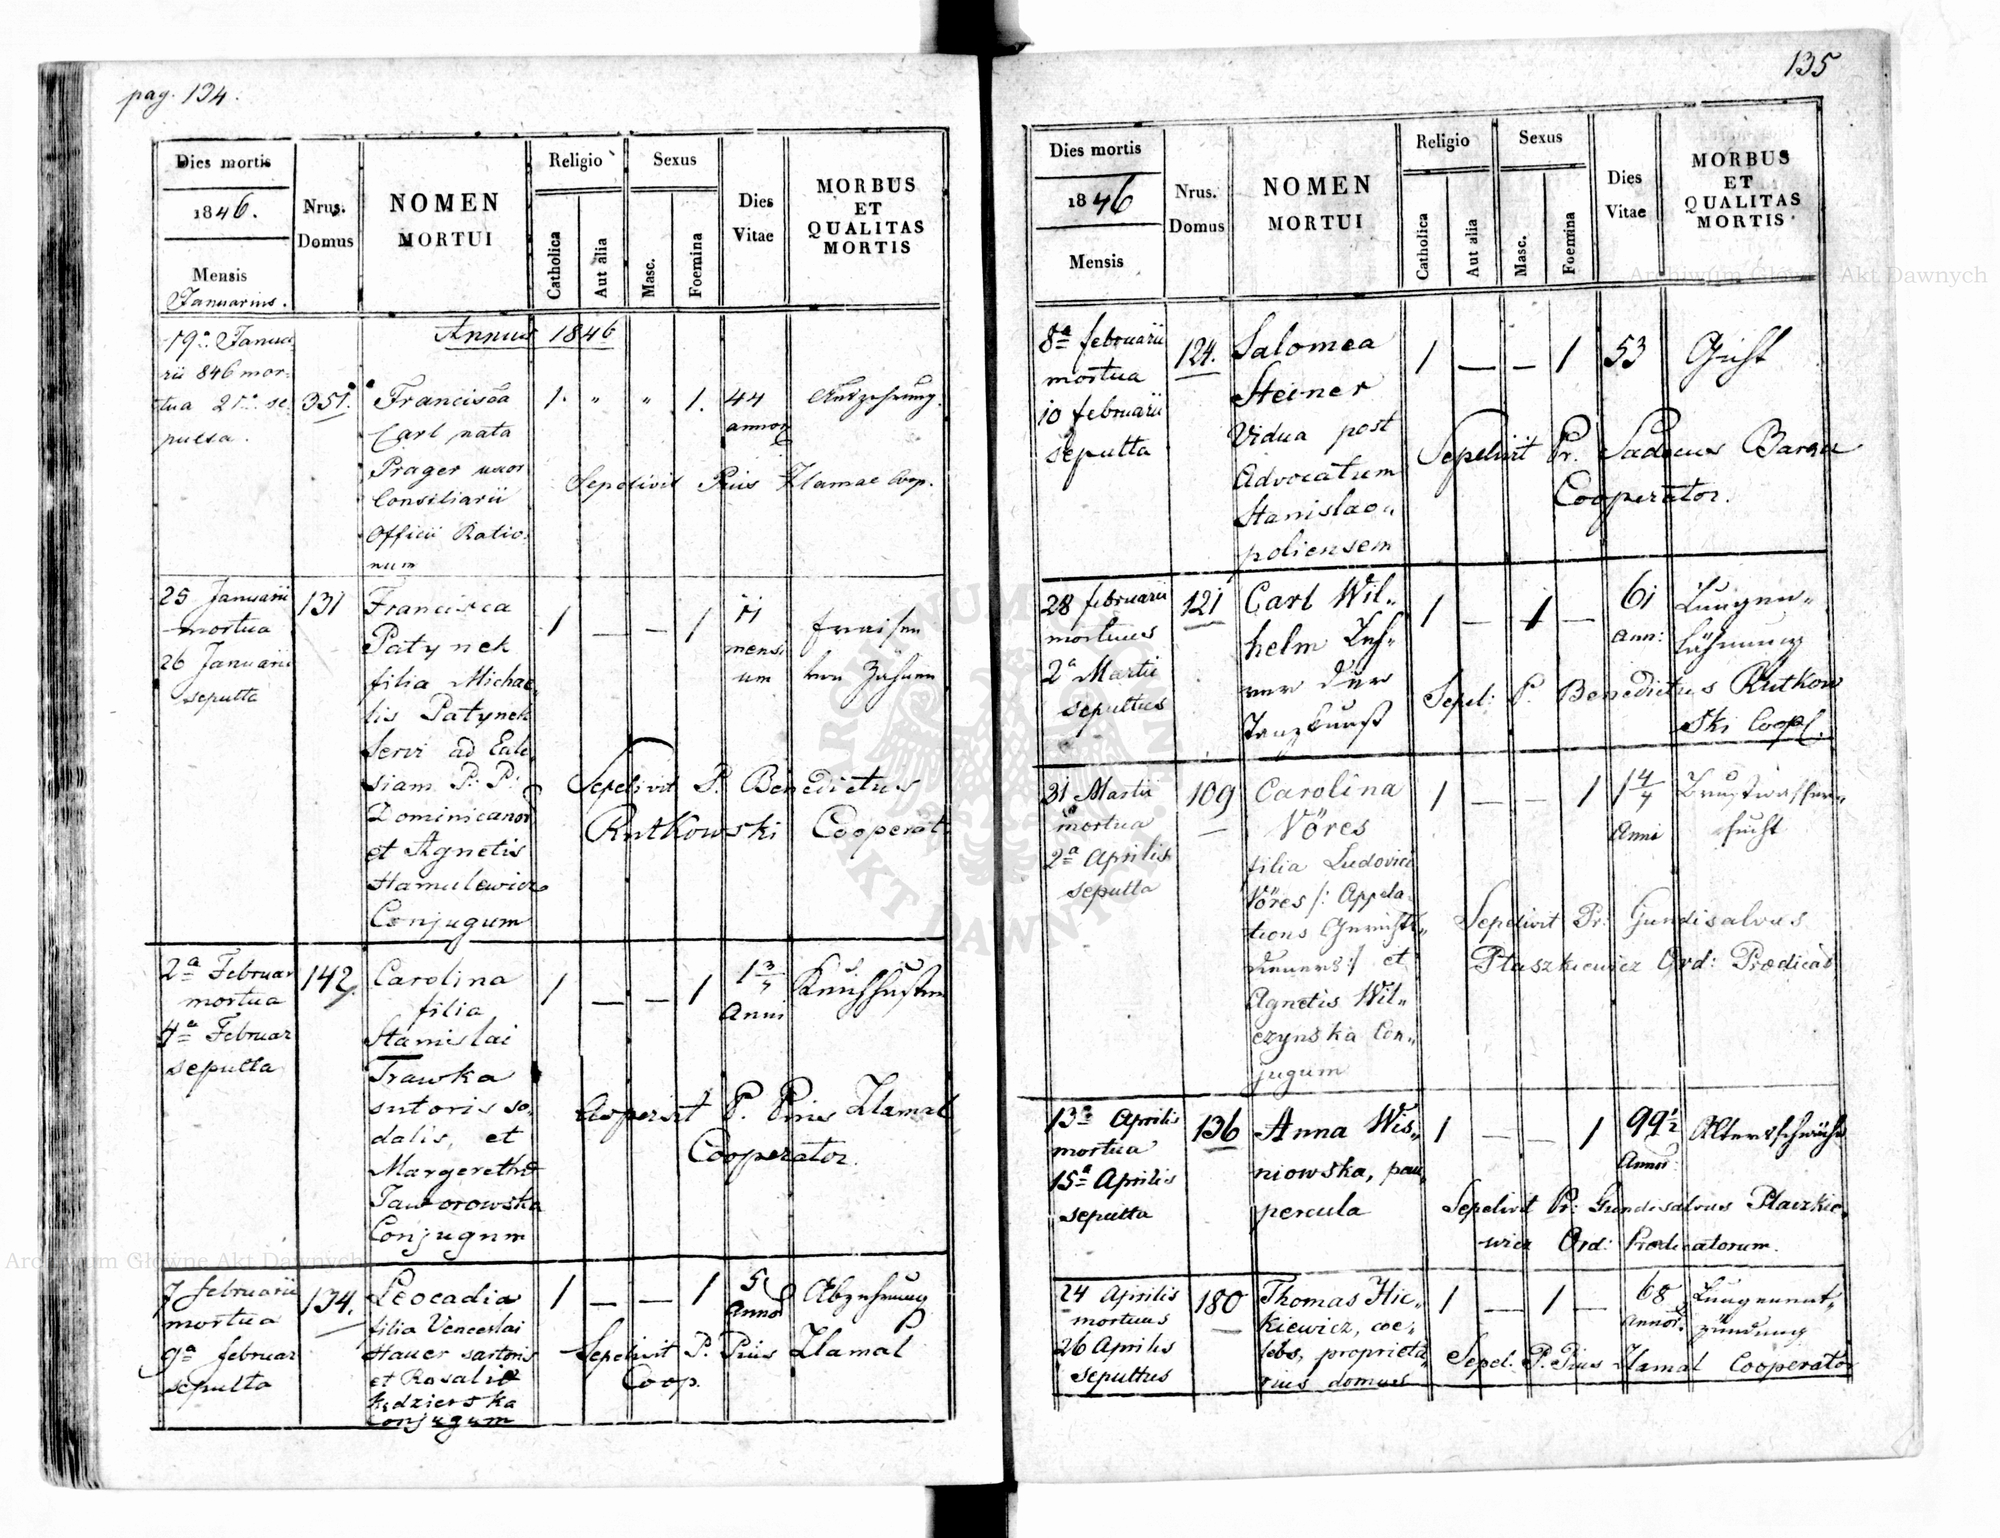 pag. 134.
Dies mortis
1846.
Mensis
Januarius.
Nrus.
Domus
NOMEN
MORTUI
Religio
Catholica
Aut alia
Sexus
Masc.
Foemina
Dies
Vitae
MORBUS
ET
QUALITAS
MORTIS
Annus 1846
19a Janua
rii 846 mor=
tua 21a se
pulta.
351.
Francisca
Carl nata
Prager uxor
Consiliarii
Officii Ratio
num
1. " " 1.
44
annor
Auszehrung.
Sepelivit Pius Zlamal Coop.
25 Januarii
mortua
26 Januarii
sepulta
131
Francisca
Patynek
filia Michae
lis Patynek
Servi ad Eccle
siam P: P:
Dominicanor
et Agnetis
Hamulewicz
Conjugum
1 — — 1
11
mensi
um
Fraisen
von Zähnen
Sepelivit P. Benedictus
Rutkowski Cooperat:
2a Februar
mortua
4a Februar
sepulta
142
Carolina
filia
Stanislai
Trawka
sutoris so,
dalis, et
Margeretha
Jaworowska
Conjugum
1 — — 1
Anni
Keuchhusten
Aspersit P. Pius Zlamal
Cooperator.
7 februarii
mortua
9a februar
sepulta
134.
Leocadia
filia Venceslai
Hauer sartoris
et Rosalia
Kędzierska
Conjugum
1 — — 1
5
Annor
Abzehrung
Sepelivit P. Pius Zlamal
Coop.
135
Dies mortis
1846
Mensis
Nrus.
Domus
NOMEN
MORTUI
Religio
Catholica
Aut alia
Sexus
Masc.
Foemina
Dies
Vitae
MORBUS
ET
QUALITAS
MORTIS
8a februarii
mortua
10 februarii
sepulta
124.
Salomea
Steiner
Vidua post
Advocatum
Stanislao„
poliensem
1 — — 1
53
Gicht
Sepelivit Pr. Sadocus
Cooperator.
28 februarii
mortuus
2a Martii
sepultus
121
Carl Wil„
helm Leh„
rer der
Tanzkunst
1 — 1 —
61
Ann:
Lungen„
lähmung
Sepel: P. Benedictus Rutkow
ski Coop.
31 Martii
mortua
2a Aprilis
sepulta
109
Carolina
Vöres
filia Ludovici
Vöres /: Appela
tions Gerichts„
dieners :/ et
Agnetis Wil„
czynska Con„
jugum
1 — — 1
Anni
Brustwasser„
sucht
Sepelivit Pr: Gundisalvus
Ptaszkiewicz Ord: Prædicat
13a Aprilis
mortua
15a Aprilis
sepulta
136
Anna Wis„
niowska, pau„
percula
1 — — 1
99½
Annor:
Altersschwäche
Sepelivit Pr: Gundisalvus Ptaszkie„
wicz Ord: Prædicatorum.
24 Aprilis
mortuus
26 Aprilis
sepultus
180
Thomas Hic„
kiewicz, coe„
lebs, proprietá„
rius domus
1 — 1 —
68
Annor.
Lungenent„
zündung
Sepel. P. Pius Zlamal Cooperator
Archiwum Główne Akt Dawnych
ARCHIWUM GŁÓWNE
AKT DAWNYCH
Archiwum Główne Akt Dawnych